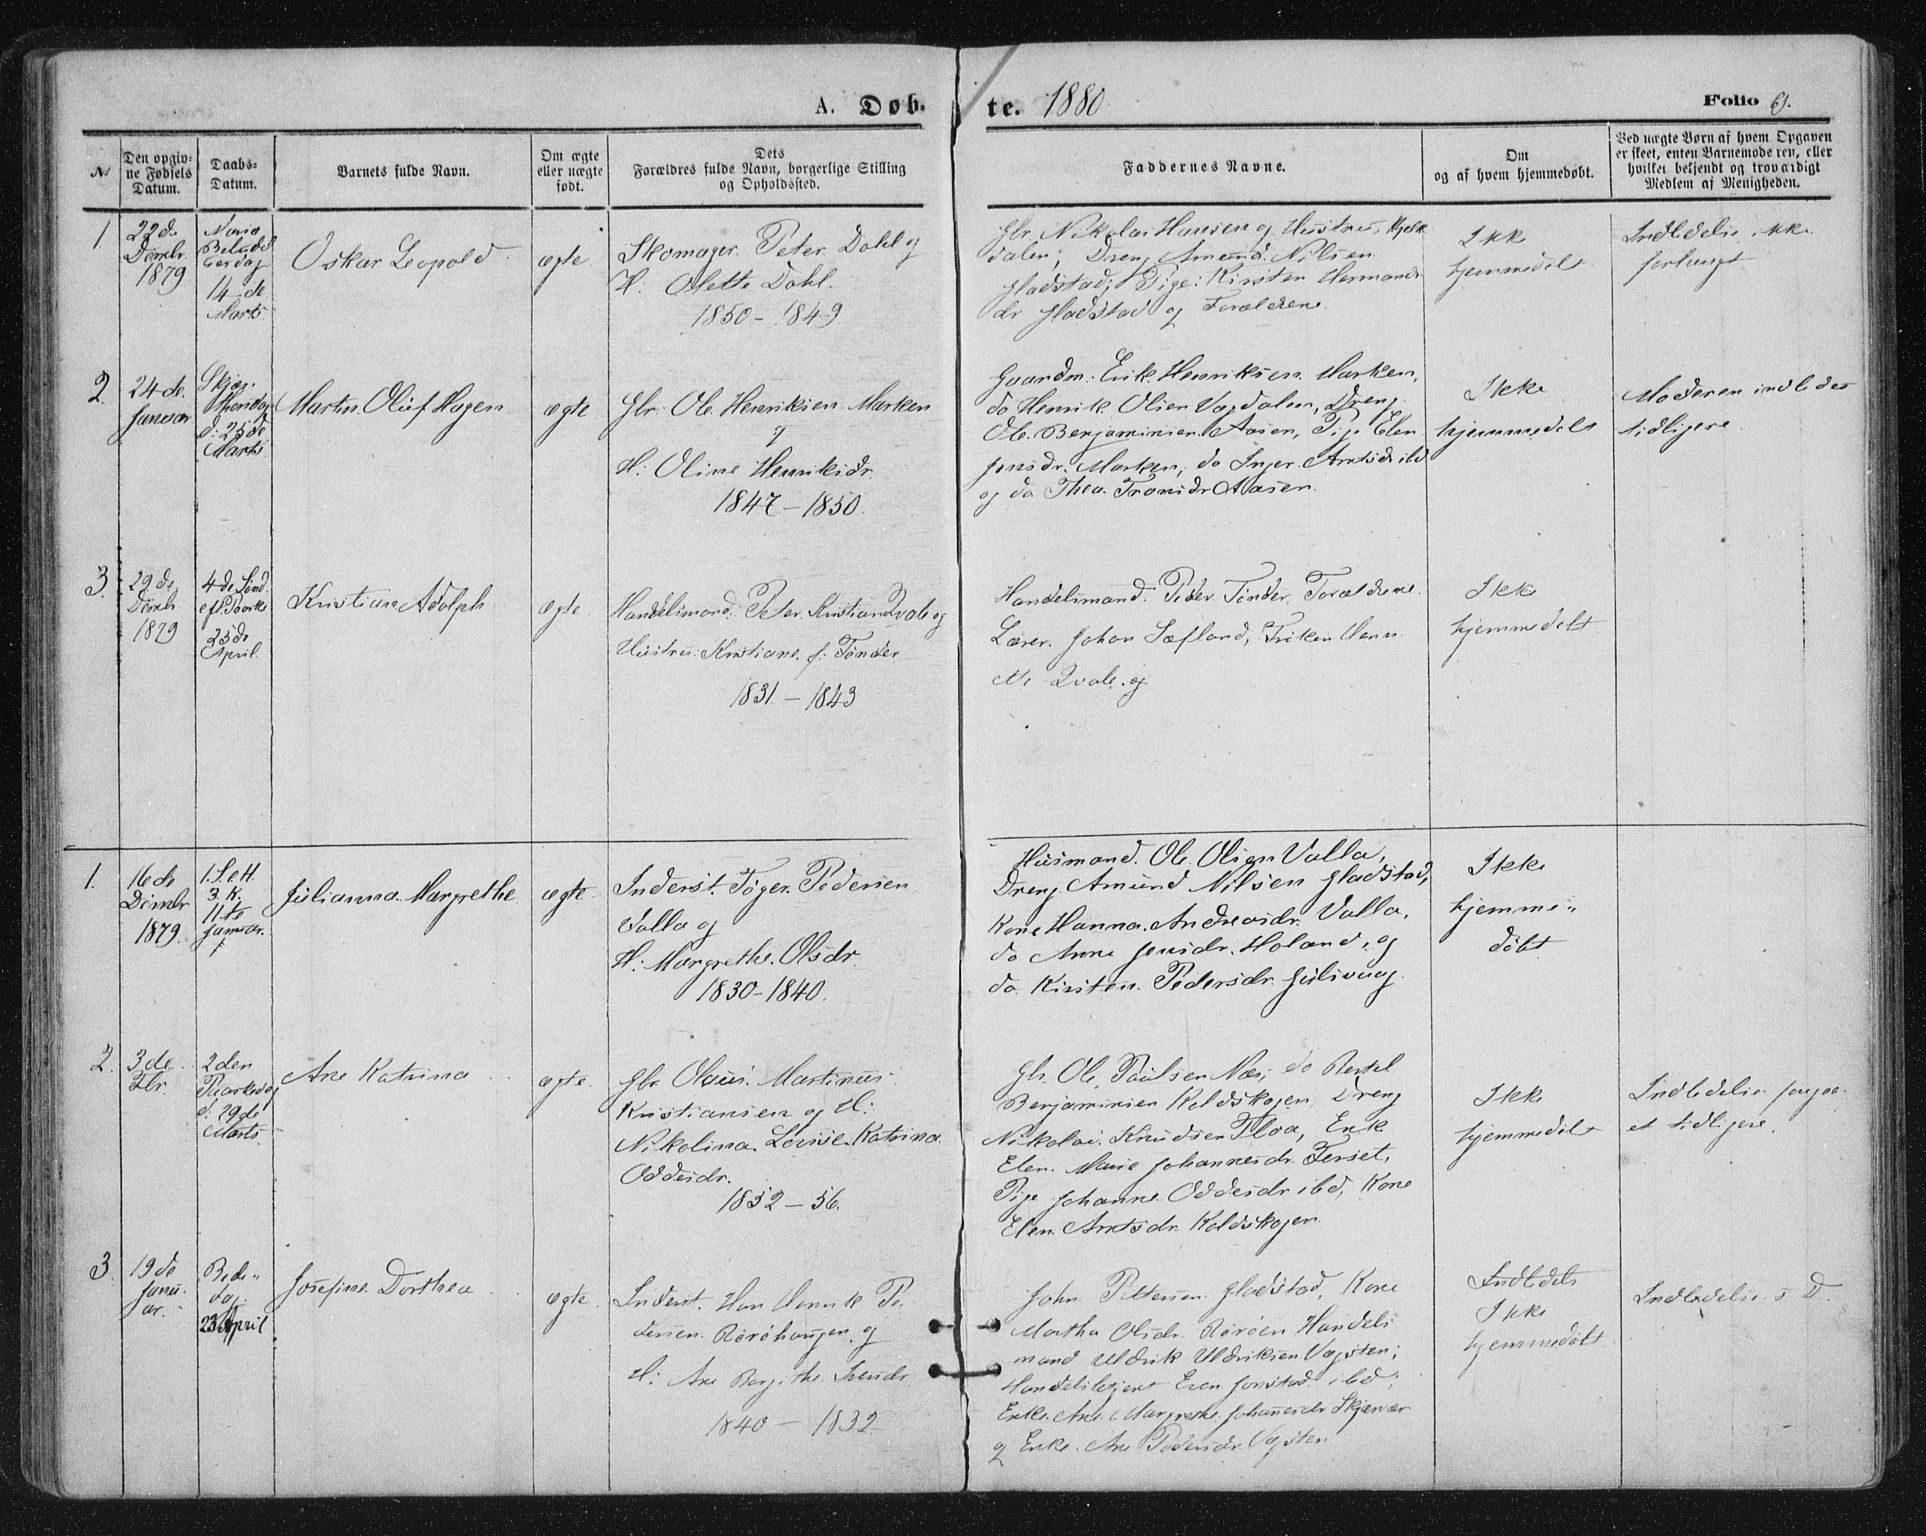 A. Døb-
te. 1880
Folio 61.
№
Den opgiv-
ne Fødsels
Datum.
Daabs-
Datum.
Barnets fulde Navn.
Om ægte
eller uægte
født.
Dets
Forældres fulde Navn, borgerlige Stilling
og Opholdssted.
Faddernes Navne.
Om
og af hvem hjemmedøbt.
Ved uægte Børn af hvem Opgaven
er skeet, enten Barnemoderen, eller
hvilket bekjendt og troværdigt
Medlem af Menigheden.
1
22de
Dcmbr
1879
Maria
Bebudel
14-de
Marts
Oskar Leopold
ægte
Skomager Peter Dahl og
H: Olette Dahl.
1850-1849
Gbr. Nikolai Hansen og Hustru,
dalen; Dreng Amund Nilsen
Gladstad; Pige: Kirsten Hermands
dr Gladstad og Forældrene.
Ikke
hjemmedøbt
Indledelse ikke
forlangt
2
24de
Januar
Skjær
Thorsdag
d: 25de
Marts
Martin Oluf Hagen
ægte
Gbr: Ole Henriksen Marken
og
H: Oline Henriksdr.
1847-1850
Gaardm: Erik Henriksen Marken,
do Henrik Olsen Vagdalen, Dreng
Ole Benjaminsen Aasen, Pige Elen
Jensdr. Marken, do Inger Arntsdr ibd
og do Thea Fransdr Aasen.
Ikke
hjemmedøbt
Moderen indledet
tidligere
3.
29de
Dcmbr
1879
4de Sønd.
eft. Paaske
25de
April.
Kristian Adolph
ægte
Handelsmand Peter Kristian Qvale og
Hustru Kristiane f: Tønder
1831-1843
Handelsmand Peder Tønder, Forældrene.
Lærer Johan Sæfland, Frøken
Qvale og
Ikke
hjemmedøbt
1.
16de
Dcmbr
1879
1. S. e H.
3 K.
11te
Januar.
Julianna Margrethe
ægte
Inderst. Tøger Pedersen
Valla og
H: Margrethe Olsdr
1830-1840.
Husmand Ole Olsen Valla,
Dreng Amund Nilsen Gladstad,
Kone Hanna Andreasdr. Valla,
do Anne Jensdr. Holand, og
do Kirsten Pedersdr Husvaag
Ikke
hjemme-
døbt
2.
3de
Fbr.
2den
Paaskedag
d: 29de
Marts
Ane Katrina
ægte
Gbr Olaus Martinus
Kristiansen og H:
Nikolina Lovise Katrina
Oddesdr.
1852-56.
Gbr. Ole Paulsen Næs, do Bertel
Benjaminsen Koldskogen, Dreng
Nikolai Knudsen Floa, Enke
Elen Marie Johannesdr Ferset,
Pige Johanne Oddesdr ibd, Kone
Elen Arntsdr Koldskogen
Ikke
hjemmedøbt
Indledelse foregaa-
et tidligere.
3.
19de
Janu-
ar.
Bede-
dag
23 April
Josefine Dorthea
ægte
Inderst. Hans Henrik Pe-
dersen Rørøhaugen og
H: Ane Bergithe
1840-1832
John Pettersen Gladstad, Kone
Martha Olsdr Rørøen Handels
mand Uldrik Uldriksen Vagsten;
Handelsbetjent Even Jonstad ibd;
Enke Ane Margrethe Johannesdr Skjærvær
og Enke Ane Pedersdr Vagsten
Indledels
Ikke
hjemmedøbt
Indledelse s. D.